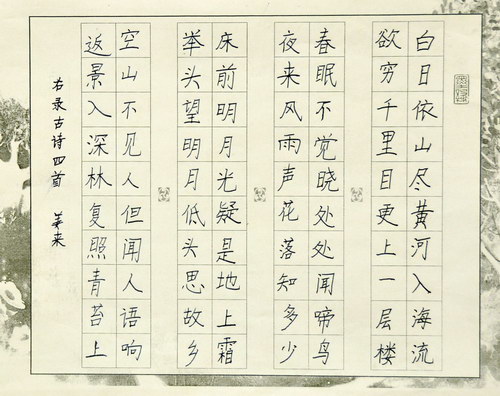 白日依山尽黄河入海流
欲穷千里目更上一层楼
春眠不觉晓处处闻啼鸟
夜来风雨声花落知多少
床前明月光疑是地上霜
举头望明月低头思故乡
空山不见人但闻人语响
返景入深林复照青苔上
右录古诗四首 姜来